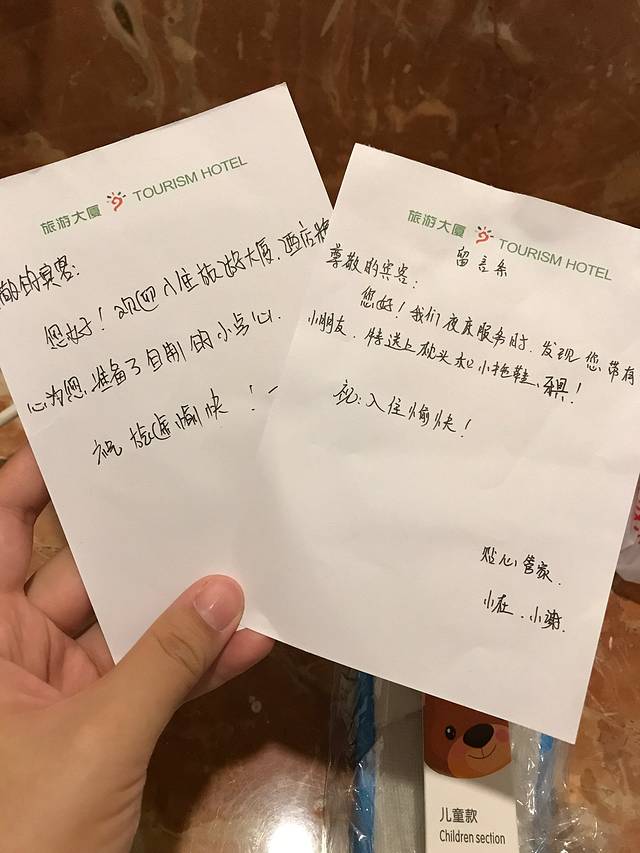 旅游大厦 TOURISM HOTEL
敬的宾客:
您好!欢迎入住旅游大厦.酒店精
心为您准备了自制的小点心.
祝旅途愉快!
旅游大厦 TOURISM HOTEL
留言条
尊敬的宾客:
您好!我们夜床服务时.发现您带有
小朋友.特送上枕头和小拖鞋、
祝:入住愉快!
贴心管家.
小在.小谢.
儿童款
Children section